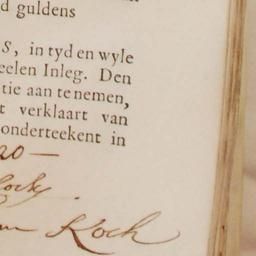 d guldens
S, in tyd en wyle
eelen Inleg. Den
tie aan te nemen,
t verklaart van
onderteekent in
Koch